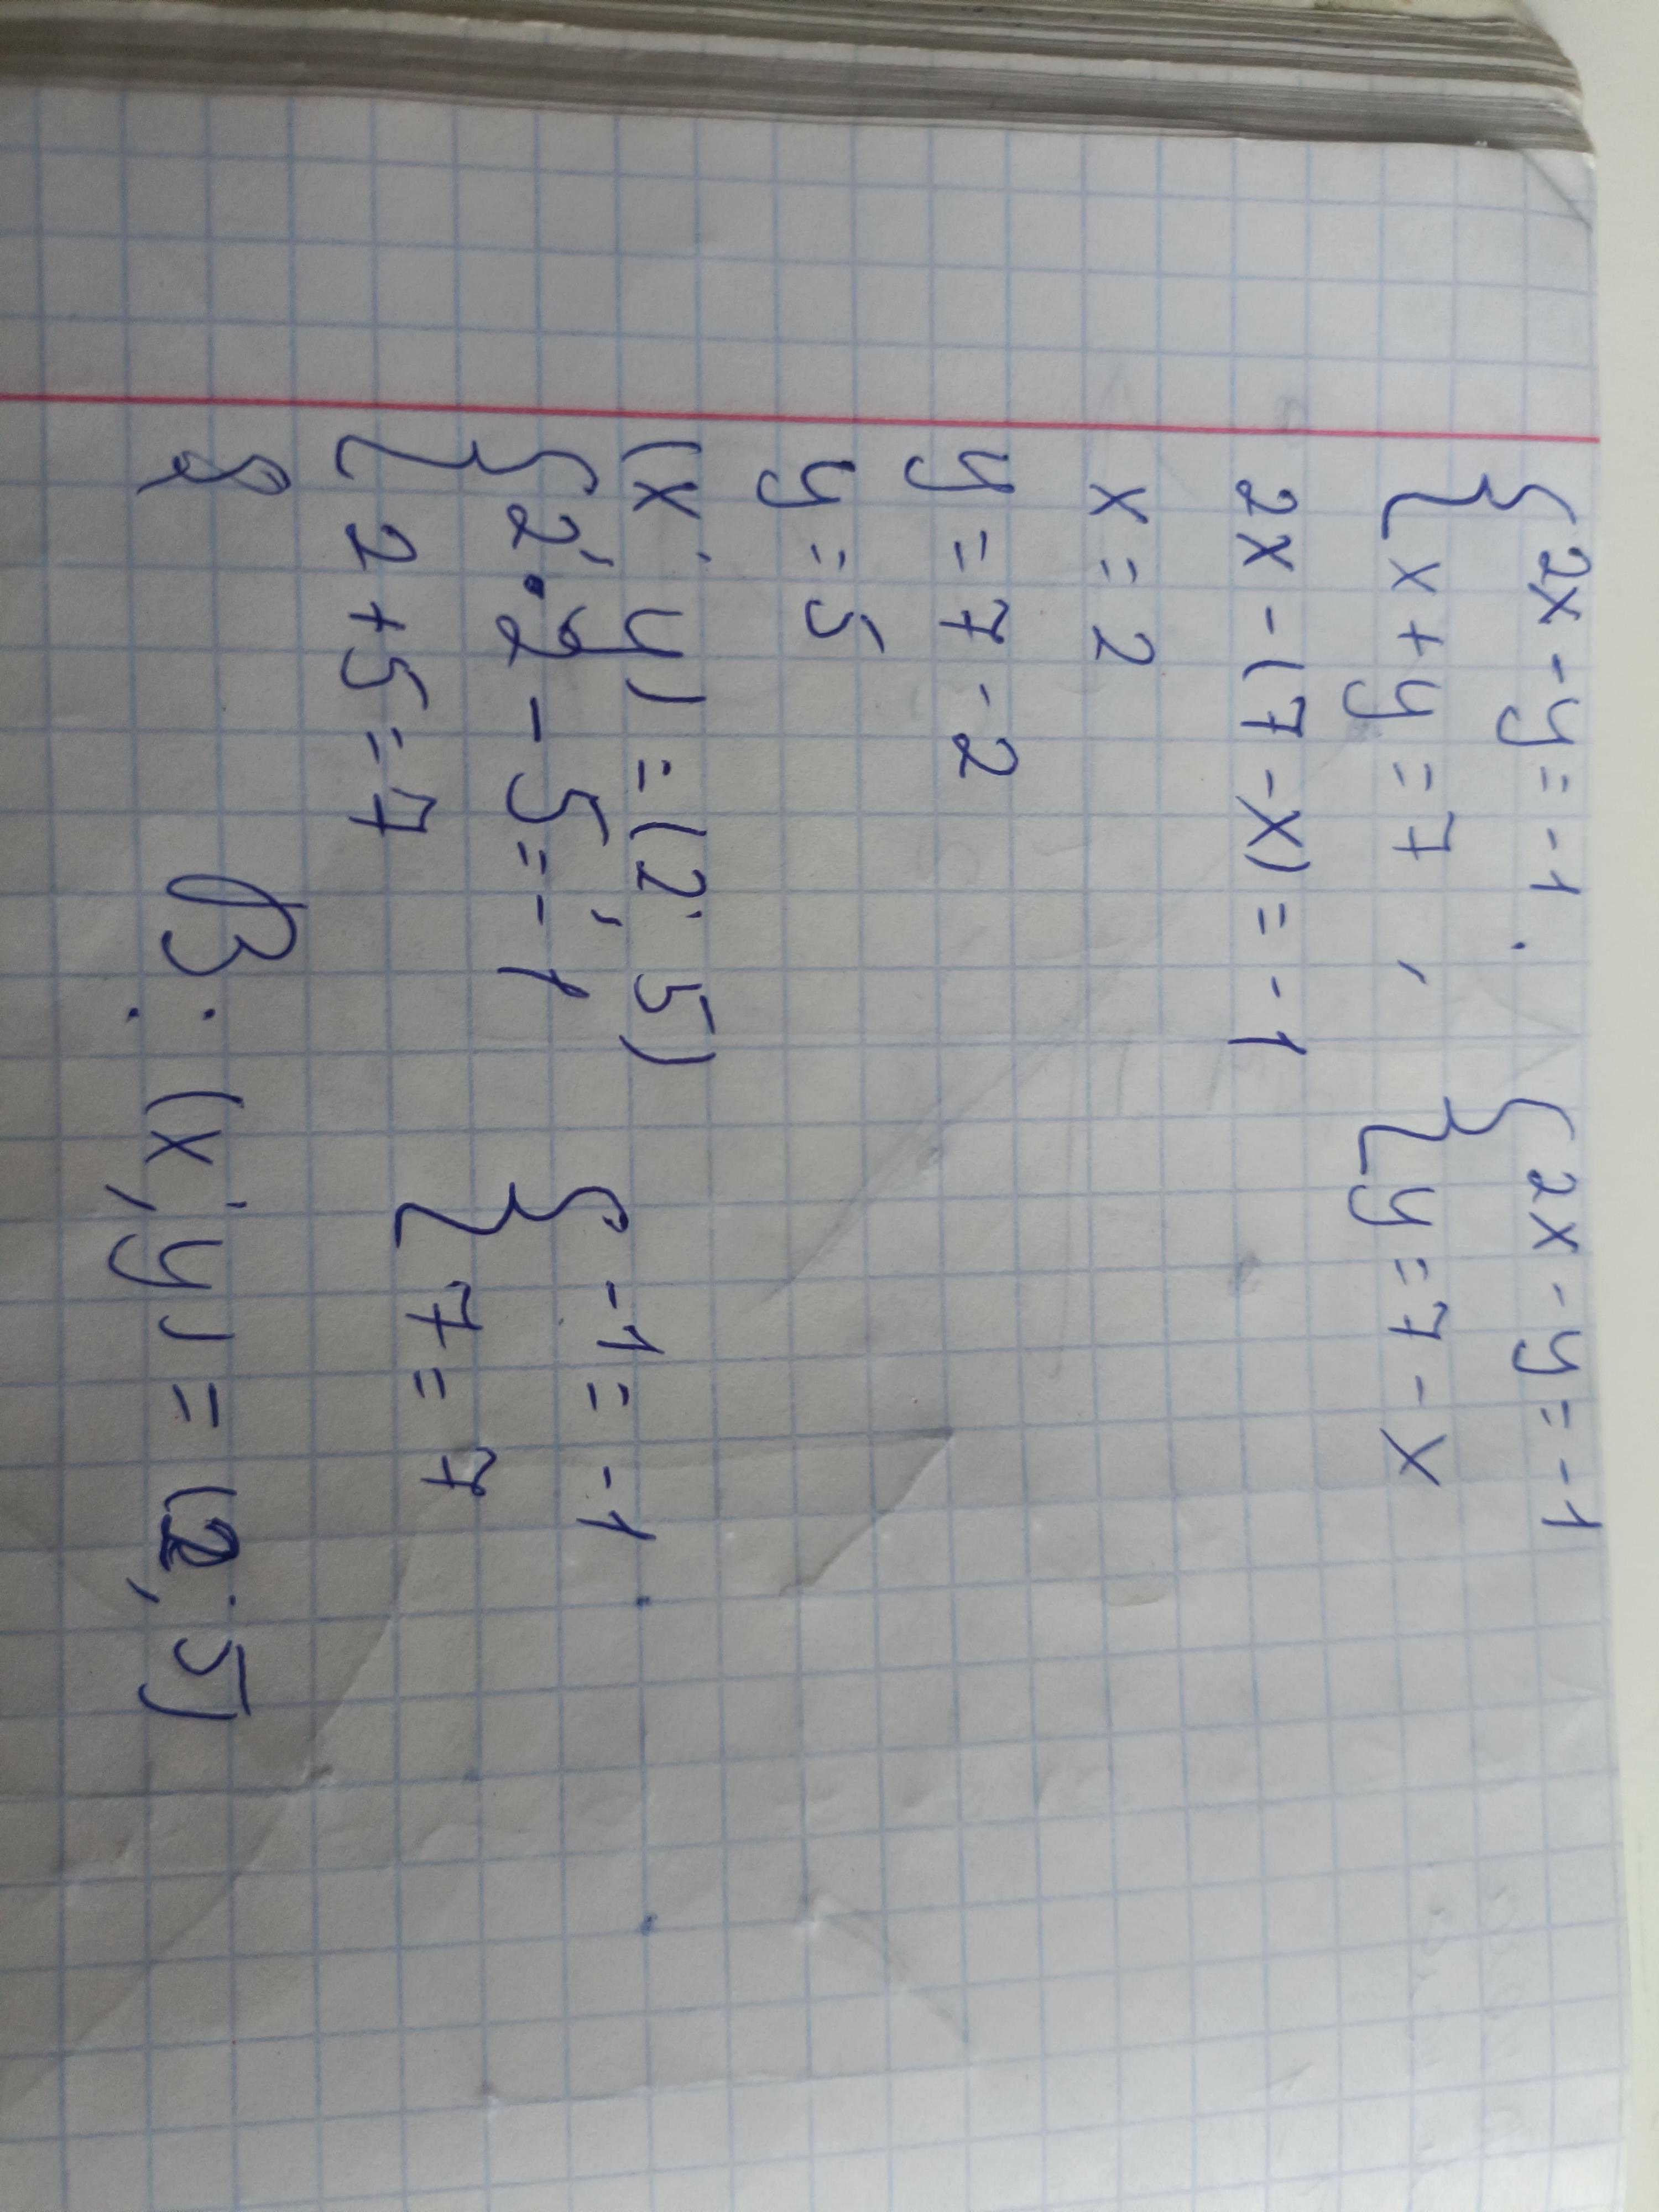 {2x - y = -1 . {2x - y = -1
{x + y = 7 , {y = 7 - x
2x - (7 - x) = -1
x = 2
y = 7 - 2
y = 5
(x ; y) = (2 ; 5)
{2 · 2 - 5 = -1 {-1 = -1
{2 + 5 = 7 {7 = 7
В: (x ; y) = (2 ; 5)